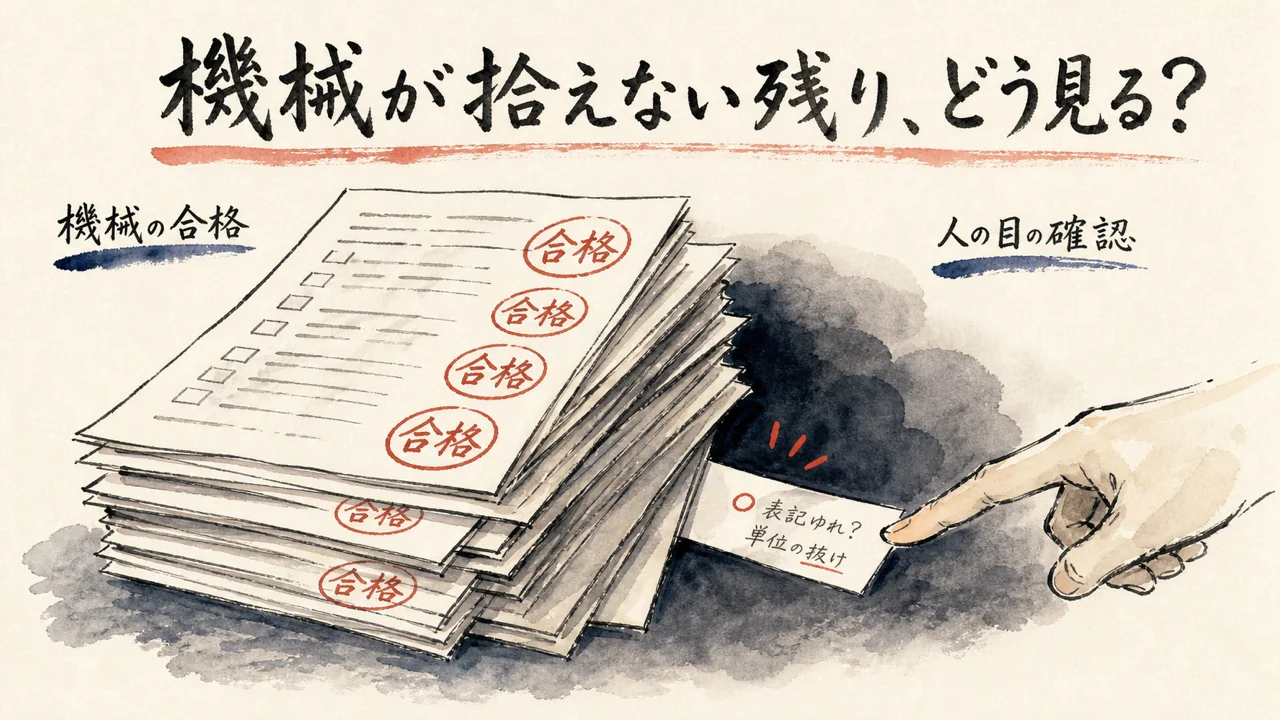 機械が拾えない残り、どう見る?
機械の合格
人の目の確認
合格
合格
合格
合格
合格
合格
表記ゆれ?
単位の抜け